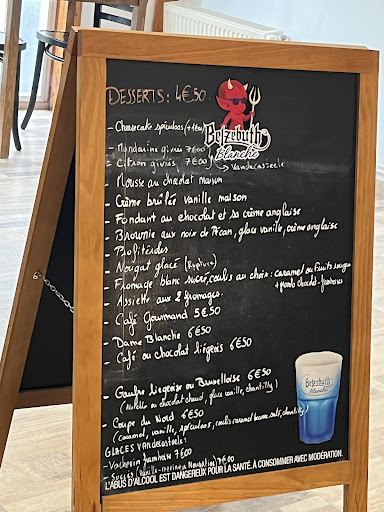 DESSERTS: 4€50.
- Cheesecake spéculoos (+1€00)
Belzebuth
Blanche
- Mandarine givrée 7€00
- Citron givrés, 7€00 → Vandecasteele
- Mousse au chocolat maison
- Crème brûlée vanille maison
- Fondant au chocolat et sa crème anglaise
- Brownie aux noix de Pécan, glace vanille, crème anglaise
- Profiteroles
- Nougat glacé
- Fromage blanc sucré, coulis au choix: caramel ou fruits rouges
+ perles chocolat-framboise
- Assiette aux 2 fromages.
- Café Gourmand 5€50
- Dame Blanche 6€50
- Café ou chocolat liégeois 6€50
- Gaufre liégeoise ou Bruxelloise 6€50
(Nutella ou chocolat chaud, glace vanille, chantilly)
- Coupe du Nord 6€50
(caramel, vanille, spéculoos, coulis caramel beurre salé, chantilly)
GLACES VANDECASTEELE:
- Vacherin framboise 7€00
- Sucrés (Vanille-meringue Nougatine) 7€00
Belzebuth
Blanche
L'ABUS D'ALCOOL EST DANGEREUX POUR LA SANTÉ. À CONSOMMER AVEC MODÉRATION.